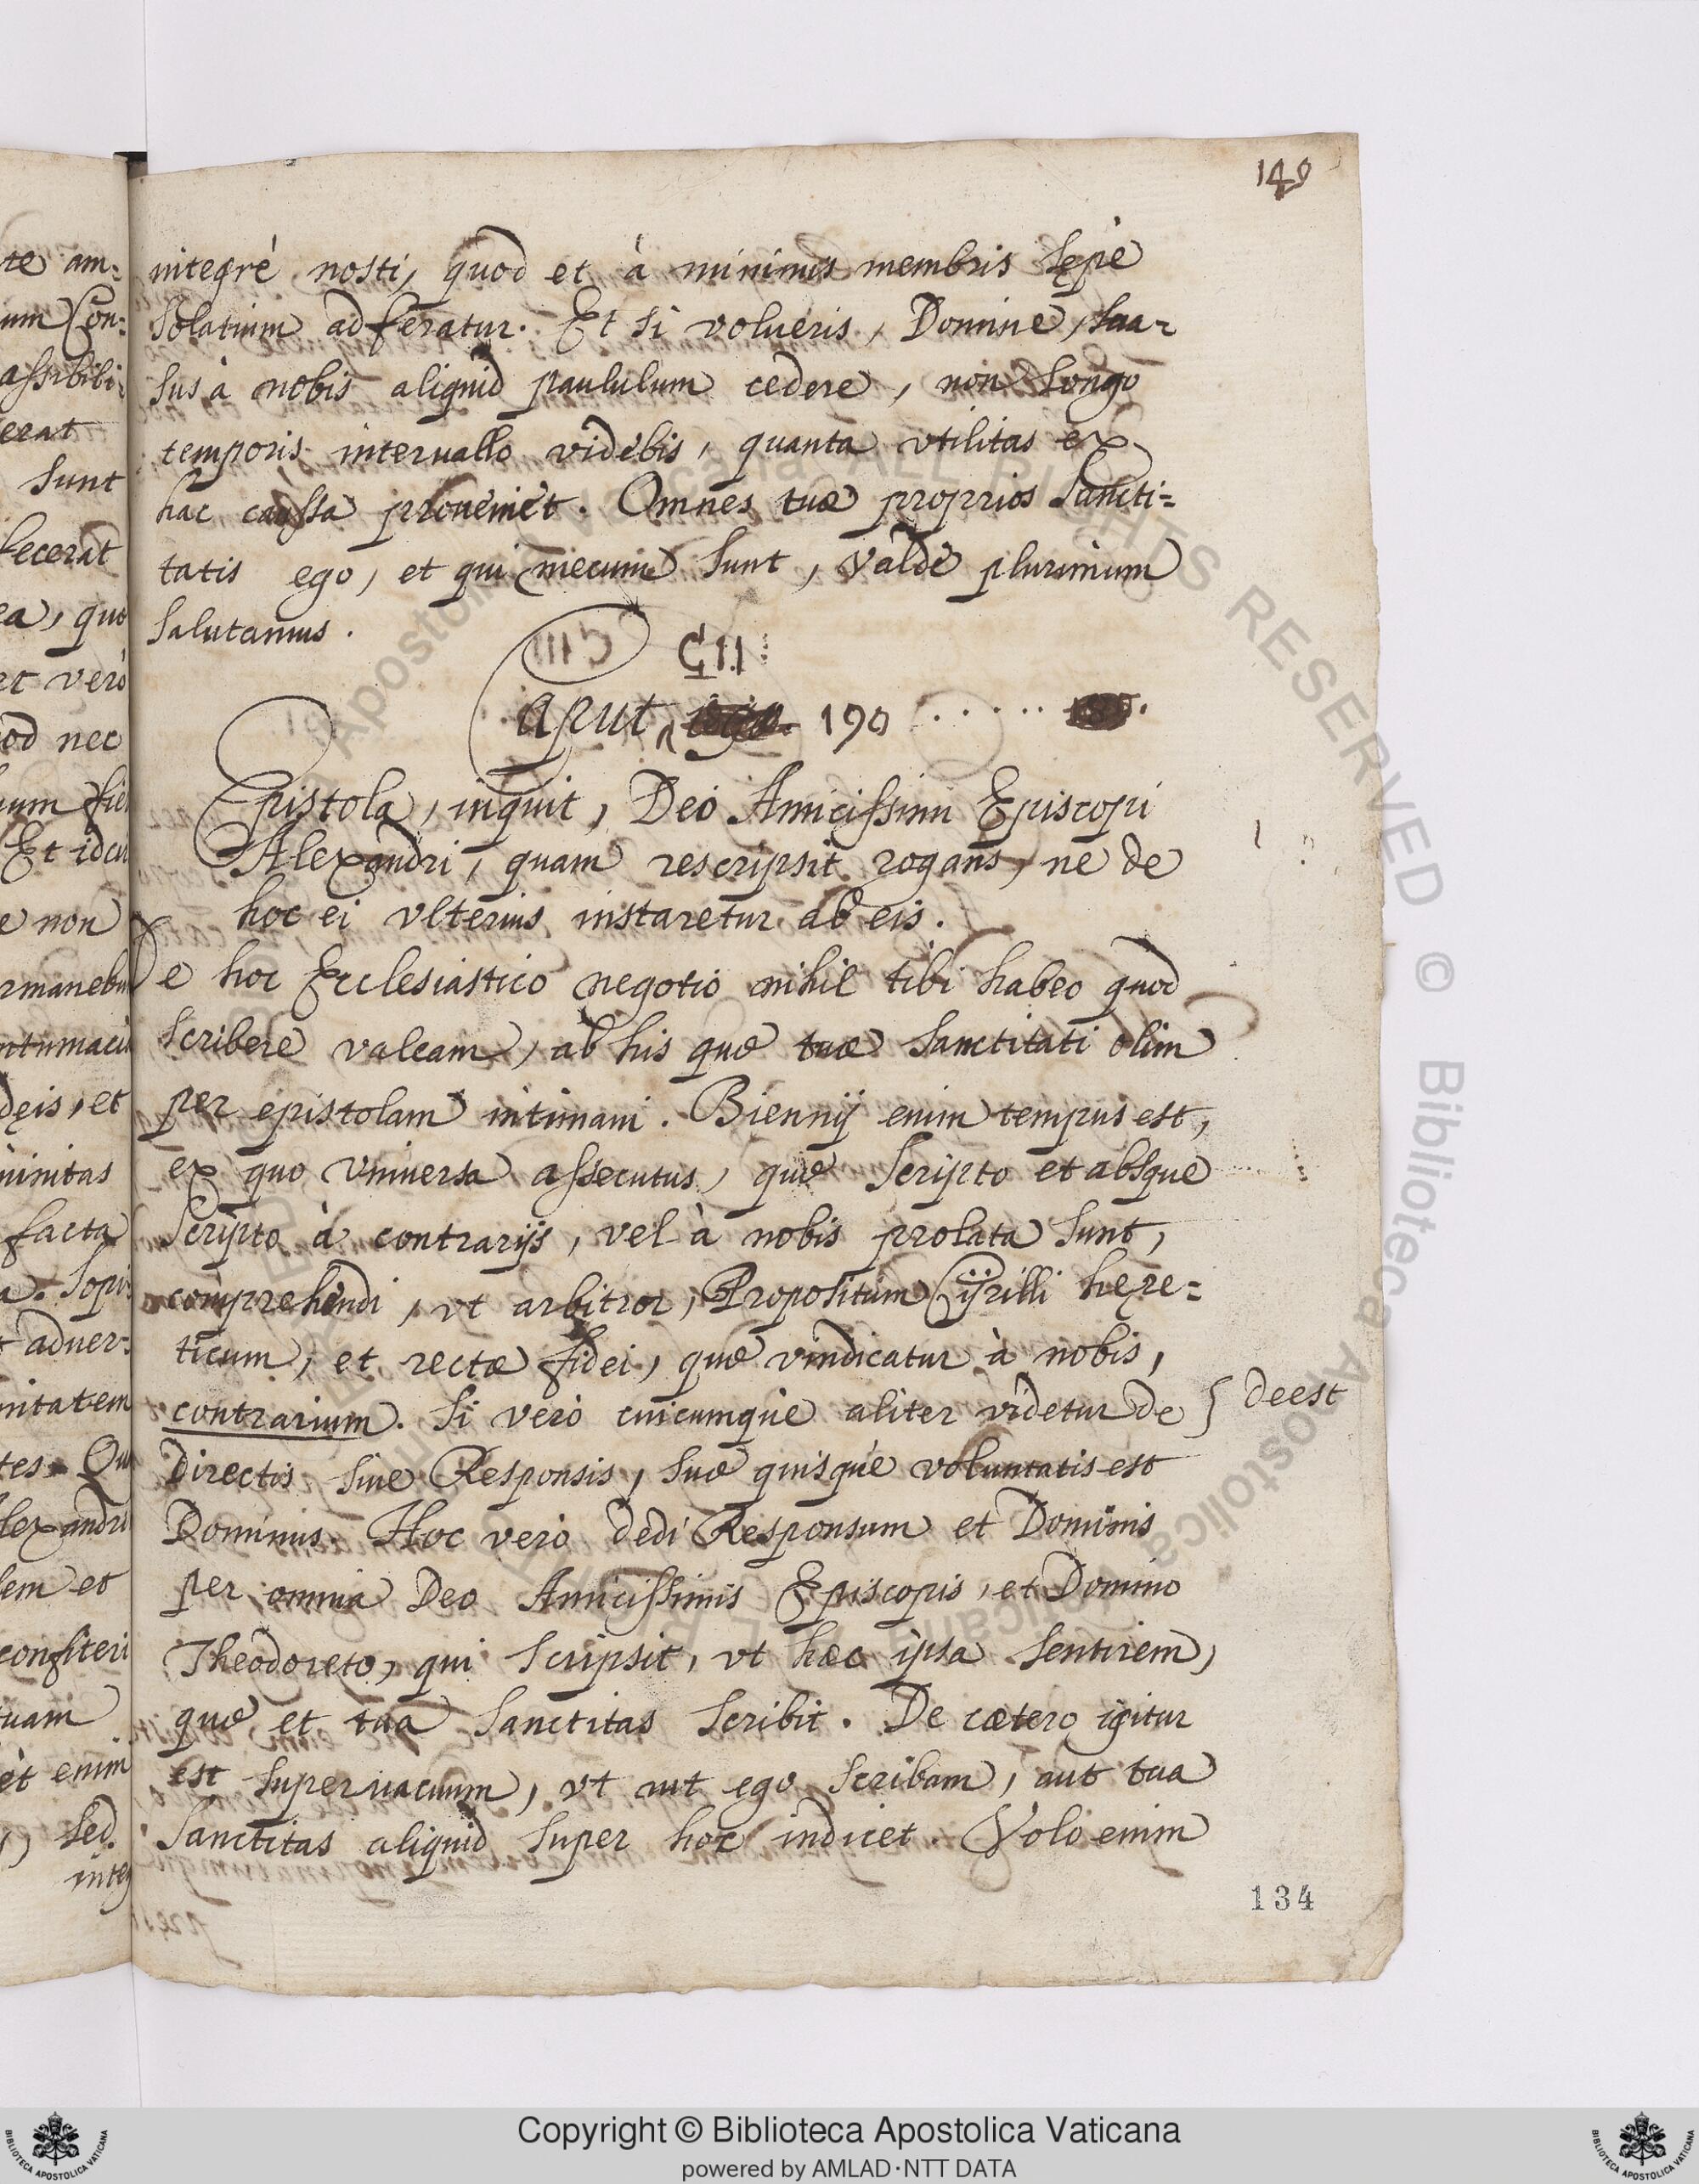 149
integrè nosti, quod et à minimis membris sępè
solatium adferatur. Et si volueris, Domine, sua=
sus à nobis aliquid paululum cedere, non longo
temporis interuallo videbis, quanta vtilitas ex
hac caussa proueniet. Omnes tuæ proprios sancti=
tatis ego, et qui mecum sunt, valdè plurimum
salutamus.
Caput 190 ......
Epistola, inquit, Deo Amicissimi Episcopi
Alexandri, quam rescripsit rogans, ne de
hoc ei vlterius instaretur ab eis.
De hoc Ecclesiastico negotio nihil tibi habeo quod
scribere valeam, ab his quæ tuæ sanctitati olim
per epistolam intimaui. Biennij enim tempus est,
ex quo vniuersa assecutus, quæ scripto et absque
scripto à contrarijs, vel à nobis prolata sunt,
comprehendi, vt arbitror, Propositum Cÿrilli hęre=
ticum, et rectæ fidei, quæ vindicatur à nobis,
contrarium. Si verò cuicumque aliter videtur de } deest
Directis siue Responsis, suæ quisque voluntatis est
Dominus. Hoc verò dedi Responsum et Dominis
per omnia Deo Amicissimis Episcopis, et Domino
Theodoreto, qui scripsit, vt hæc ipsa sentirem,
quæ et tua sanctitas scribit. De cætero igitur
est superuacuum, vt aut ego scribam, aut tua
Sanctitas aliquid super hoc indicet. Volo enim
134
te am=
um Con=
assibili
erat
sunt
fecerat
ea, quo
et verò
od nec
Et idcir
e non
deis, et
facta
aduer=
nitatem
tes. Qui
lem et
confiteri
tuam
et enim
sed
integ
Copyright © Biblioteca Apostolica Vaticana
powered by AMLAD·NTT DATA